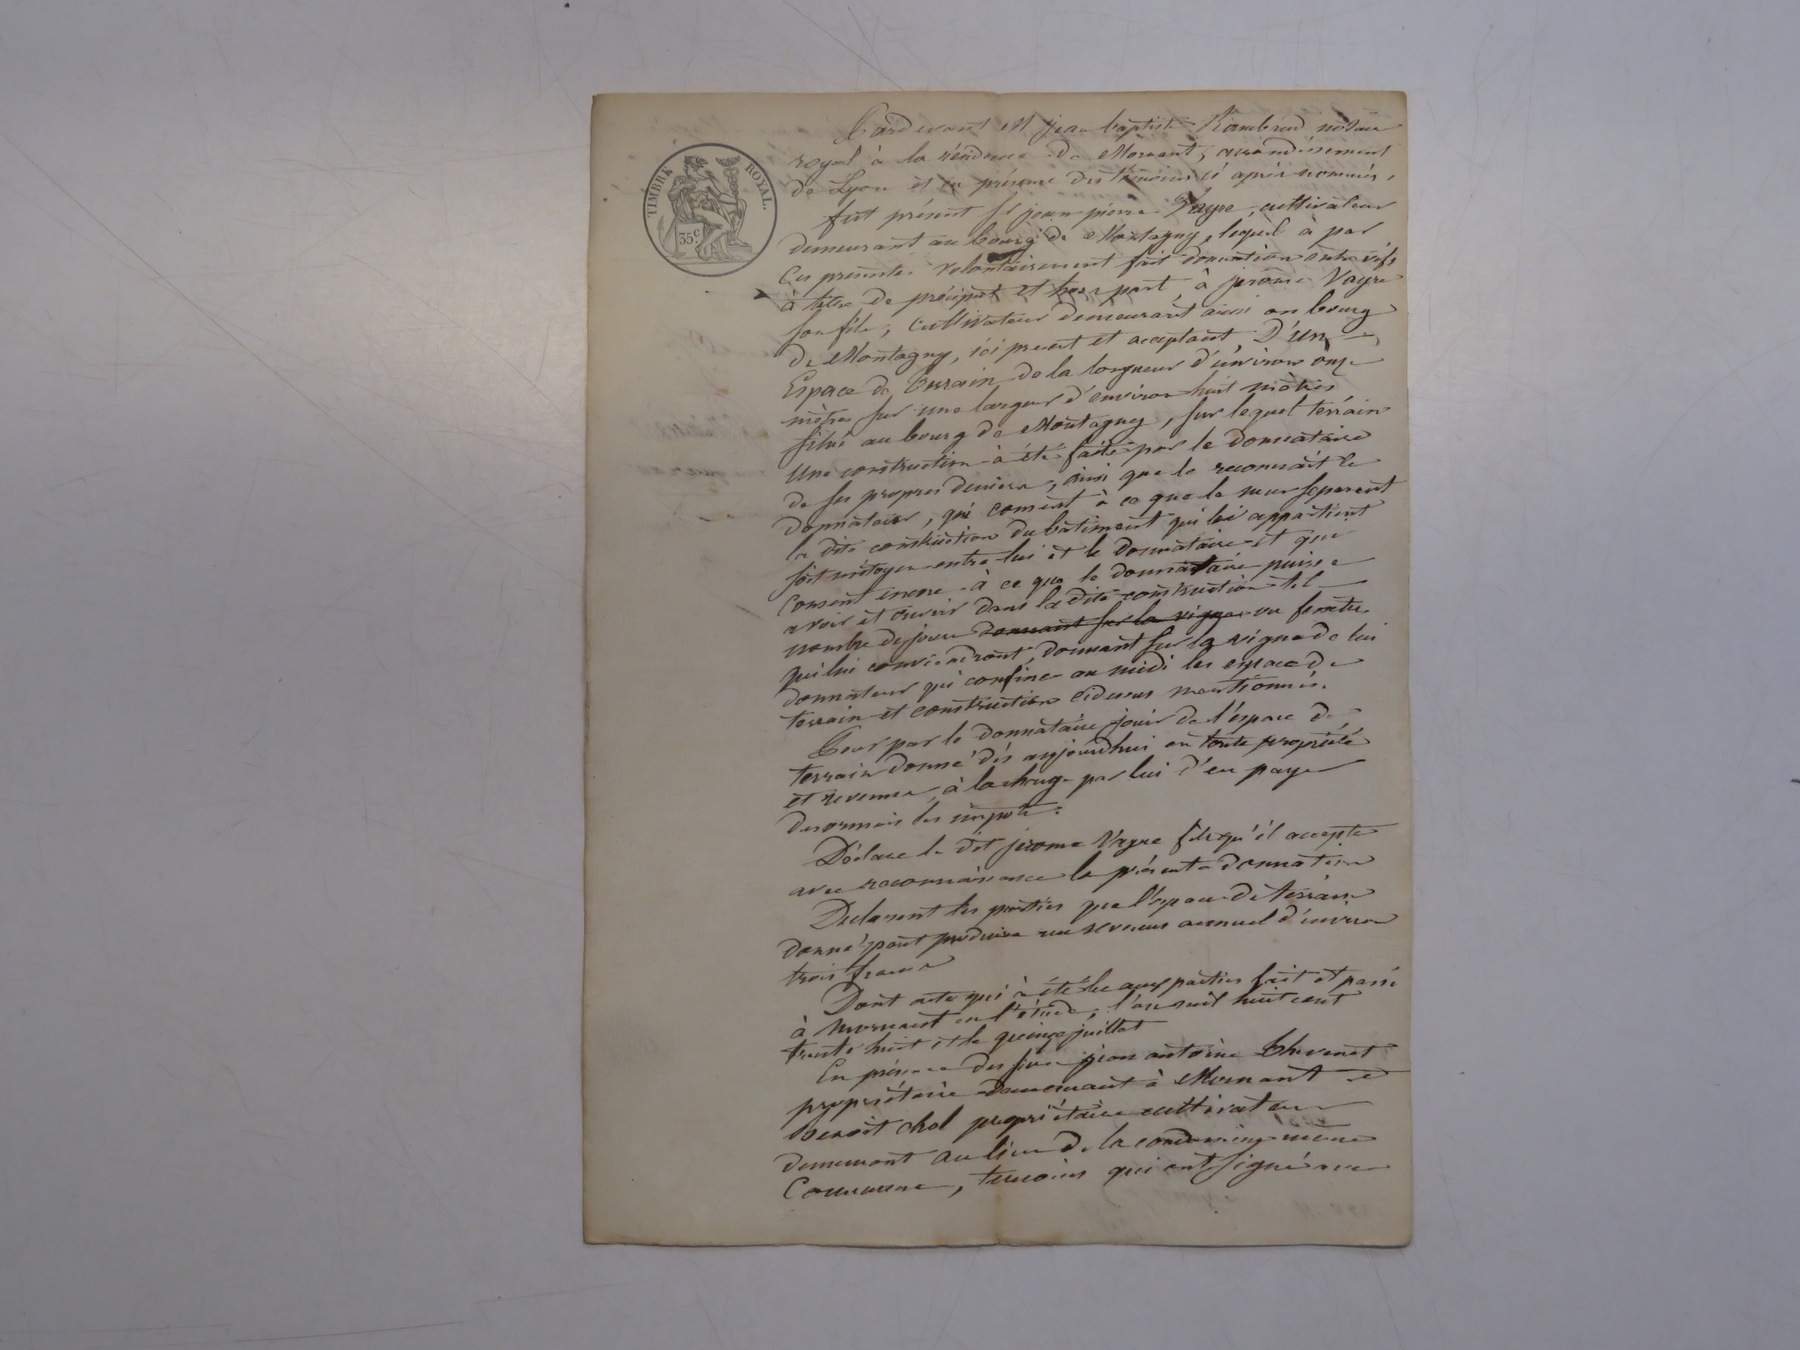 TIMBRE ROYAL.
35c.
Pardevant Me jean baptiste Rambaud notaire
royal à la résidence de Mornant, arrondissement
de Lyon et en présence des témoins ci après nommés,
fut présent Sr jean pierre Vayre, cultivateur
demeurant au bourg de Montagny, lequel a par
Ces presentes volontairement fait donnation entre vifs
à titre de préciput et hors part, à jérôme Vayre
son fils, Cultivateur demeurant aussi au bourg
de Montagny, ici present et acceptant, D'un
Espace de Terrain de la longueur d'environ onze
mètres sur une largeur d'environ huit mètres
situé au bourg de Montagny, sur lequel terrain
Une construction a été faite par le Donnataire
de ses propres deniers, ainsi que le reconnait le
Donnateur, qui consent à ce que le mur separant
la dite construction du bâtiment qui lui appartient
soit mitoyen entre lui et le Donnataire et qui
Consent encore à ce que le donnataire puisse
avoir et ouvrir dans la dite construction tel
nombre de jours donnant sur la vigne ou fenetre
qui lui conviendront, donnant sur la vigne de lui
donnateur qui confine au midi les espace de
terrain et construction cidessus mentionnés.
Pour par le donnataire jouir de l'espace de
terrain donné dès aujourdhui en toute propriété
et revenus, à la charge par lui d'en payer
desormais les impots.
Déclare le dit jerome Vayre fils qu'il accepte
avec reconnaissance la présente donnation
Declarent les parties que l'espace de terrain
donné peut produire un revenu annuel d'environ
trois francs
Dont acte qui a été lu aux parties fait et passé
à Mornant en l'étude, l'an mil huit cent
trente huit et le quinze juillet
En présence des sieurs jean antoine Thevenet
propriétaire demeurant à Mornant et
benoit chol propriétaire cultivateur
demeurant au lieu de la condamine même
Commune, temoins qui ont signé avec